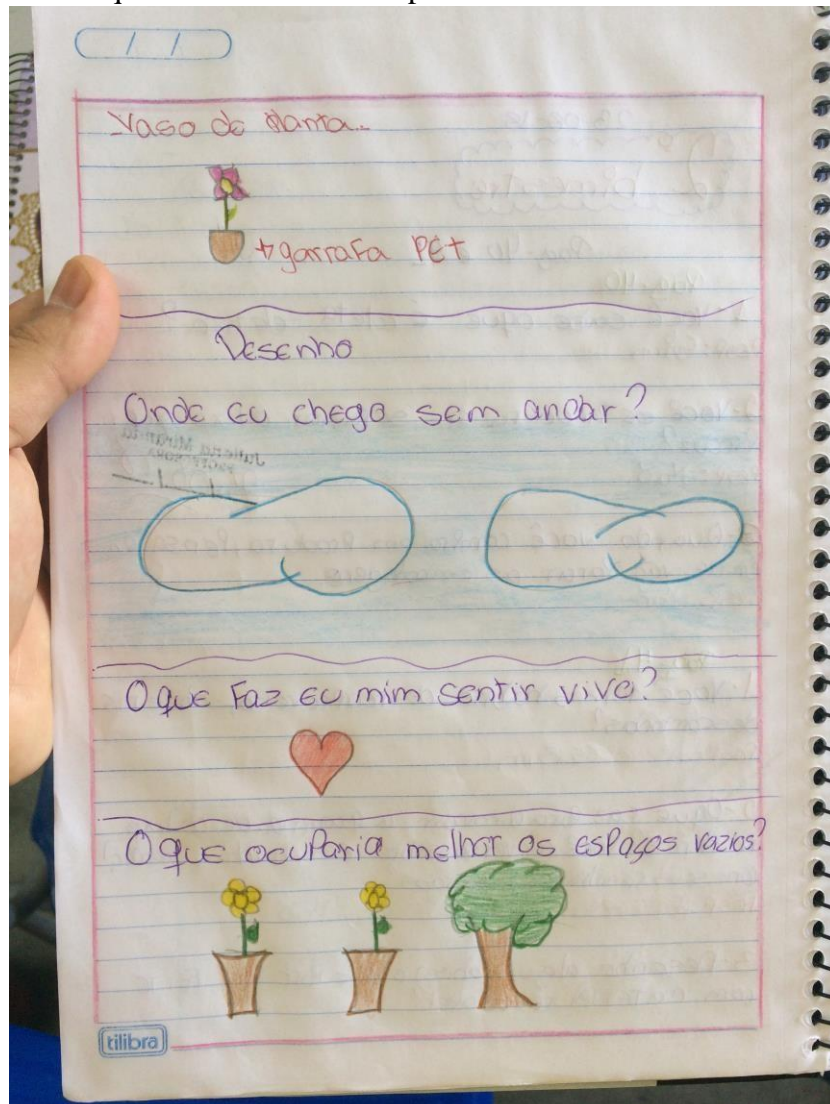 / /
Vaso de Planta.
garrafa PET
Desenho
Onde eu chego sem andar?
O que Faz eu mim sentir vivo?
O que ocuParia melhor os esPaços vazios?
tilibra